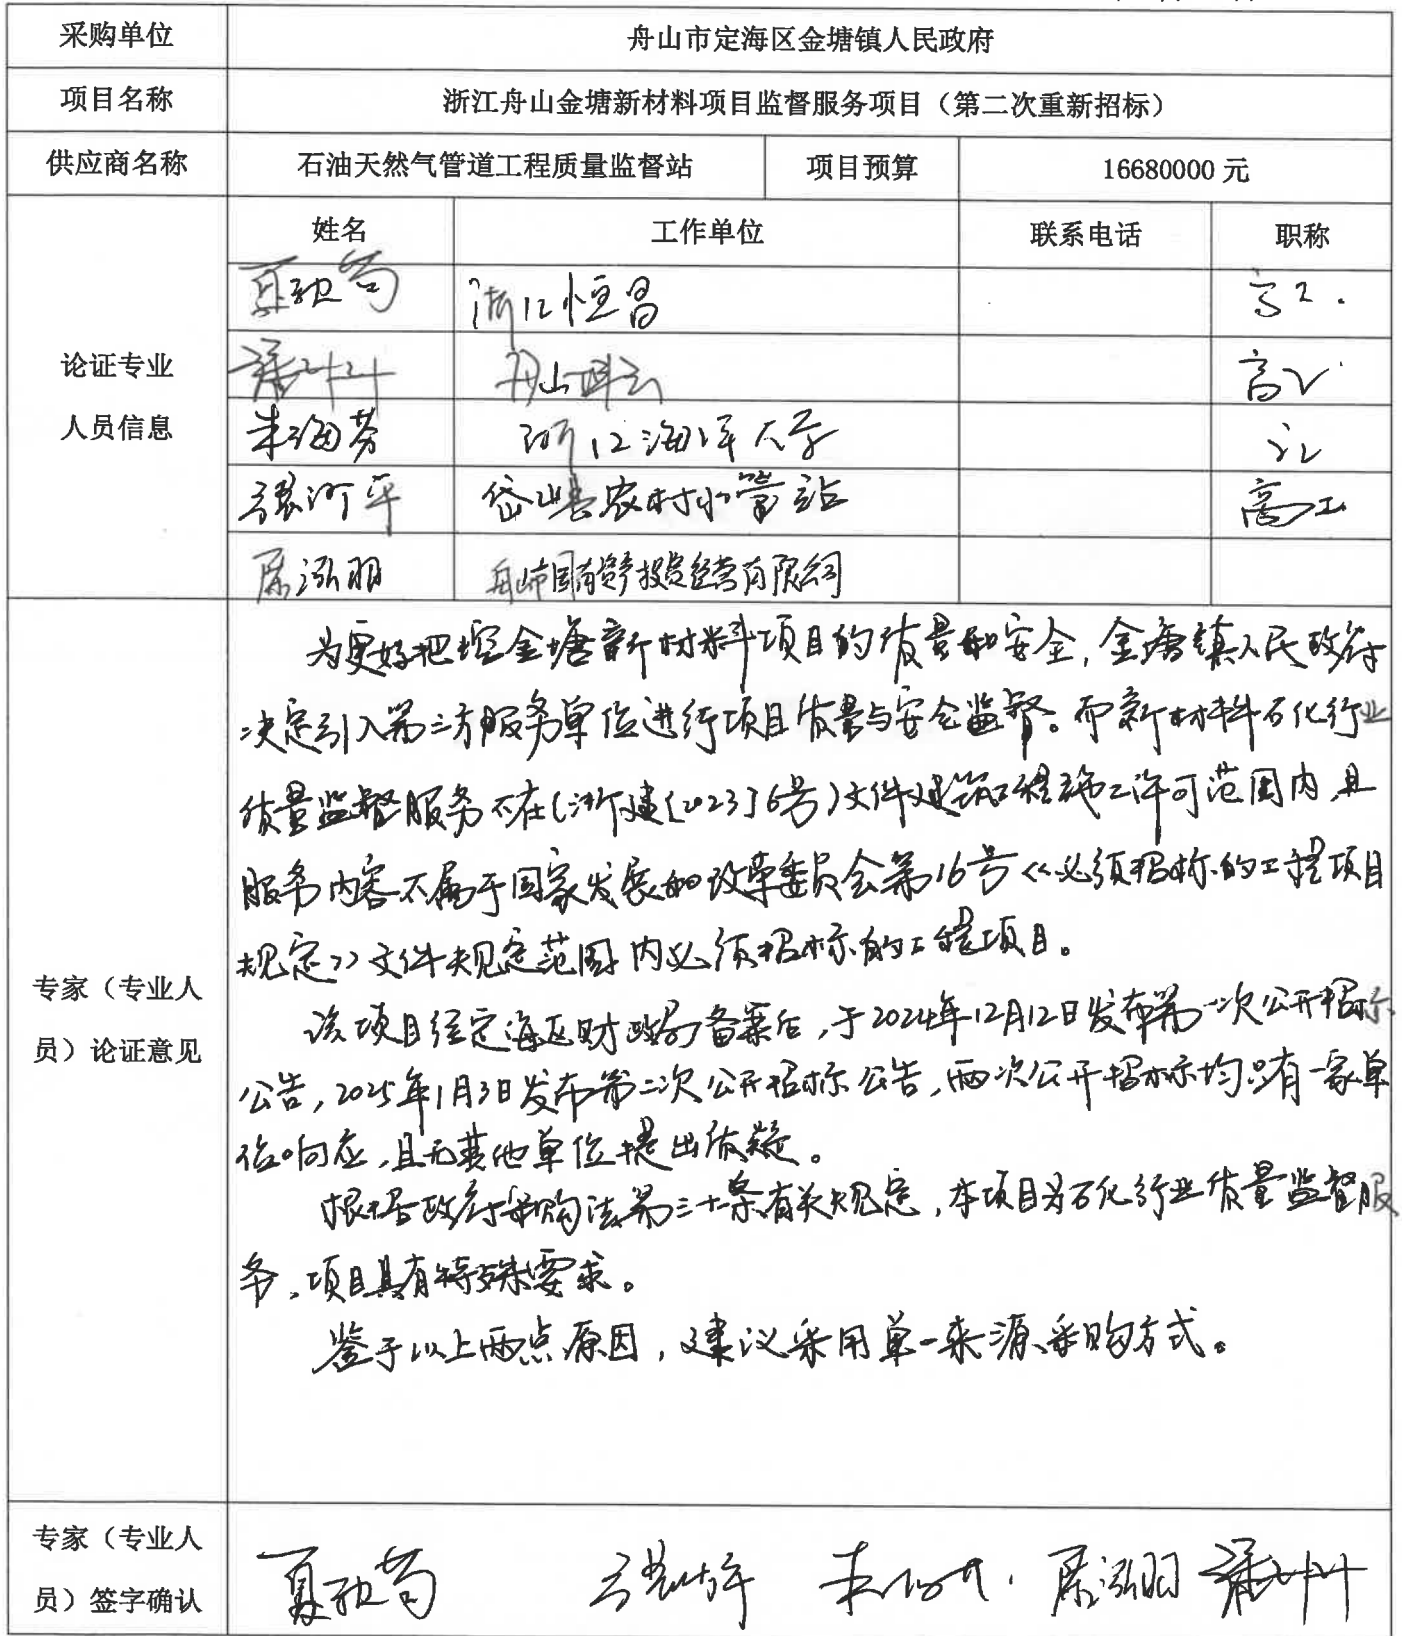 采购单位 舟山市定海区金塘镇人民政府
项目名称 浙江舟山金塘新材料项目监督服务项目（第二次重新招标）
供应商名称 石油天然气管道工程质量监督站 项目预算 16680000 元
姓名 工作单位 联系电话 职称
浙江恒昌 高工.
论证专业 舟山 高工
人员信息 朱海芬 浙江海洋大学
张河平 岱山县农村水管站 高工
屠泓明 舟山市国有资产投资经营有限公司
为更好把控金塘新材料项目的质量和安全，金塘镇人民政府
决定引入第三方服务单位进行项目质量与安全监督。而新材料石化行业
质量监督服务不在(浙建〔2023〕6号)文件建筑工程施工许可范围内，且
服务内容不属于国家发展和改革委员会第16号《必须招标的工程项目
规定》文件规定范围内必须招标的工程项目。
专家（专业人
员）论证意见
该项目经定海区财政局备案后，于2024年12月12日发布第一次公开招标
公告，2025年1月3日发布第二次公开招标公告，两次公开招标均只有一家单
位响应，且无其他单位提出质疑。
根据政府采购法第三十一条有关规定，本项目为石化行业质量监督服
务，项目具有特殊要求。
鉴于以上两点原因，建议采用单一来源采购方式。
专家（专业人
员）签字确认 屠泓明